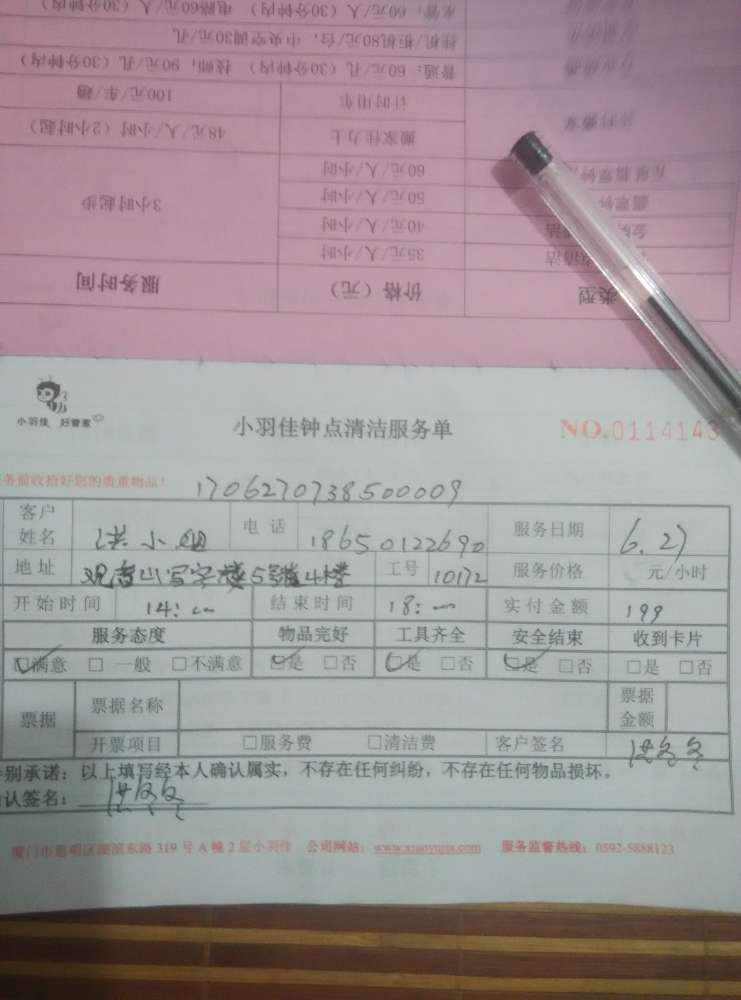 水管：60元/人（30分钟内） 电路60元/人（30分钟内）
挂机/柜机80元/台，中央空调30元/孔
普通：60元/孔（30分钟内） 技师：90元/孔（30分钟内）
计时用车 100元/车/趟
搬家住力工 48元/人/小时（2小时起）
60元/人/小时
50元/人/小时
40元/人/小时 3小时起步
35元/人/小时
类型 价格（元） 服务时间
小羽佳 好管家
小羽佳钟点清洁服务单 NO.0114143
务前收拾好您的贵重物品！ 1706270738500009
客户姓名 洪小姐 电话 18650122690 服务日期 6.27
地址 观音山写字楼5号楼4楼 工号 10172 服务价格 元/小时
开始时间 14: 结束时间 18: 实付金额 199
服务态度 物品完好 工具齐全 安全结束 收到卡片
☑满意 □一般 □不满意 ☑是 □否 ☑是 □否 ☑是 □否 □是 □否
票据 票据名称 票据金额
开票项目 □服务费 □清洁费 客户签名 洪冬冬
别承诺：以上填写经本人确认属实，不存在任何纠纷，不存在任何物品损坏。
认签名： 洪冬冬
厦门市思明区湖滨东路319号A幢2层小羽佳 公司网站：www.xiaoyujia.com 服务监督热线：0592-5888123